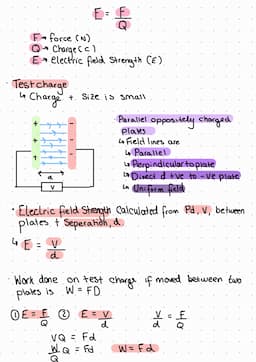 E = F
Q
F → Force (N)
Q → Charge (C)
E → Electric field Strength (E)
· Test charge
↳ Charge + Size is small
+ -
+ -
+ -
d
V
· Parallel oppositely charged
plates
↳ Field lines are
↳ Parallel
↳ Perpindicular to plate
↳ Direct d +ve to -ve plate
↳ Uniform field
· Electric field Strength Calculated from Pd, V, between
plates + Seperation, d
↳ E = V
d
· Work done on test charge if moved between two
plates is W = FD
① E = F ② E = V V = F
Q d d Q
VQ = Fd
W Q = Fd W = Fd
Q